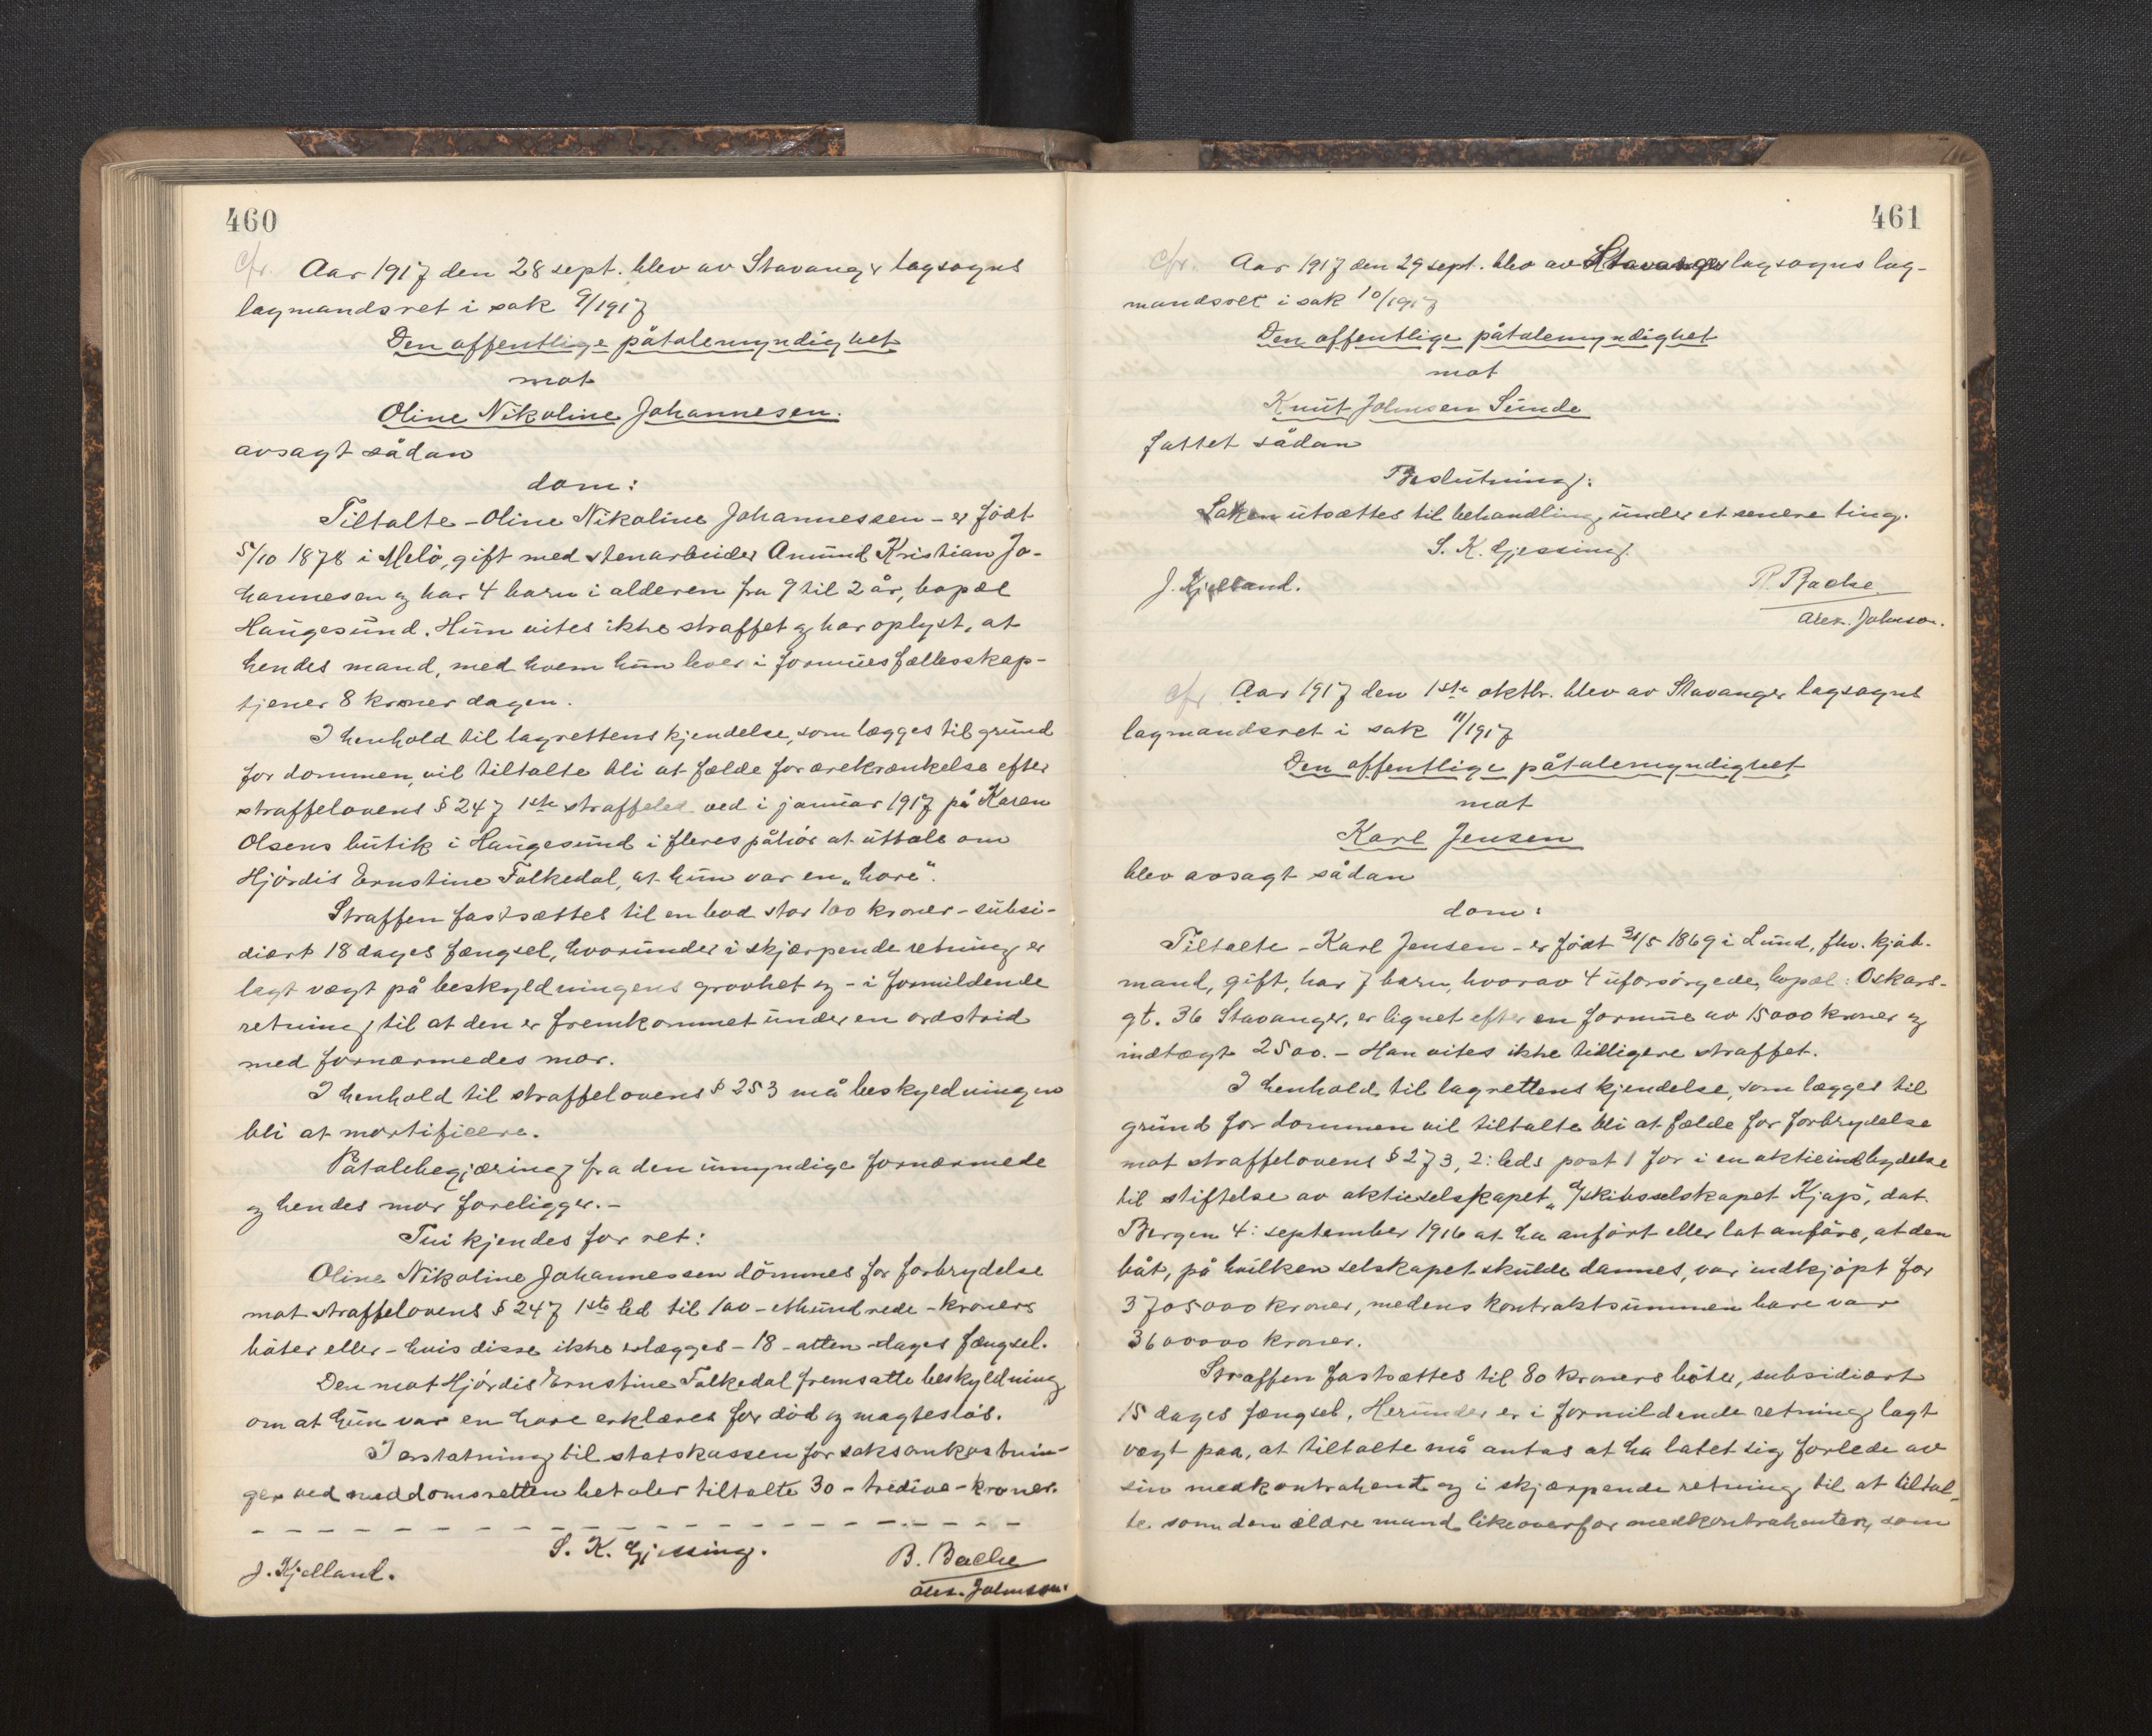 460
Cfr. Aar 1917 den 28 sept. blev av Stavanger lagsogns
lagmandsret i sak 9/1917
Den offentlige påtalemyndighet
mot
Oline Nikoline Johannesen.
avsagt sådan
dom:
Tiltalte - Oline Nikoline Johannessen - er født
5/10 1878 i Melø, gift med stenarbeider Amund Kristian Jo-
hannesen og har 4 barn i alderen fra 9 til 2 år, bopæl
Haugesund. Hun vites ikke straffet og har oplyst, at
hendes mand, med hvem hun lever i formuesfællesskap -
tjener 8 kroner dagen.
I henhold til lagrettens kjendelse, som lægges til grund
for dommen, vil tiltalte bli at fælde for ærekrænkelse efter
straffelovens § 247 1ste straffeled ved i januar 1917 på Karen
Olsens butik i Haugesund i fleres påhør at uttale om
Hjørdis Ernstine Falkedal, at hun var en "hore".
Straffen fastsættes til en bod stor 100 kroner - subsi-
diært 18 dages fængsel, hvorunder i skjærpende retning er
lagt vægt på beskyldningens grovhet og - i formildende
retning til at den er fremkommet under en ordstrid
med fornærmedes mor.
I henhold til straffelovens § 253 må beskyldningen
bli at mortificere.
Påtalebegjæring fra den umyndige fornærmede
og hendes mor foreligger. -
Tui kjendes for ret:
Oline Nikoline Johannessen dømmes for forbrydelse
mot straffelovens § 247 1ste led til 100 - ethundrede - kroners
bøter eller - hvis disse ikke erlægges - 18 - atten - dages fængsel.
Den mot Hjørdis Ernstine Falkedal fremsatte beskyldning
om at hun var en hore erklæres for død og magtesløs.
I erstatning til statskassen for saksomkostnin-
ger ved meddomsretten betaler tiltalte 30 - tredive - kroner.
S. K. Gjessing.
J. Kjelland.
B. Backe
Alex. Johnson.
461
Cfr. Aar 1917 den 29 sept. blev av Stavanger lagsogns lag-
mandsret i sak 10/1917
Den offentlige påtalemyndighet
mot
Knut Johnsen Sunde
fattet sådan
Beslutning:
Saken utsættes til behandling under et senere ting.
S. K. Gjessing.
J. Kjelland.
B. Backe
Alex. Johnson.
cfr. Aar 1917 den 1ste oktbr. blev av Stavanger lagsogns
lagmandsret i sak 11/1917
Den offentlige påtalemyndighet
mot
Karl Jensen
blev avsagt sådan
dom:
Tiltalte - Karl Jensen - er født /5 1869 i Lund, fhv. kjøb-
mand, gift, har 7 barn, hvorav 4 uforsørgede, bopæl: Oskars-
gt. 36 Stavanger, er lignet efter en formue av 15000 kroner og
indtægt 2500. - Han vites ikke tidligere straffet.
I henhold til lagrettens kjendelse, som lægges til
grund for dommen vil tiltalte bli at fælde for forbrydelse
mot straffelovens § 273, 2: leds post 1 for i en aktieindbydelse
til stiftelse av aktieselskapet "A/S skibsselskapet Kjap", dat.
Bergen 4: september 1916 at ha anført eller lat anføre, at den
båt, på hvilken selskapet skulde dannes, var indkjøpt for
3705000 kroner, medens kontraktsummen bare var
3600000 kroner.
Straffen fastsættes til 80 kroners bøter, subsidiært
15 dages fængsel. Herunder er i formildende retning lagt
vægt paa, at tiltalte må antas at ha latet sig forlede av
sin medkontrahent og i skjærpende retning til at tiltal-
te som den ældre mand likeoverfor medkontrahenten, som